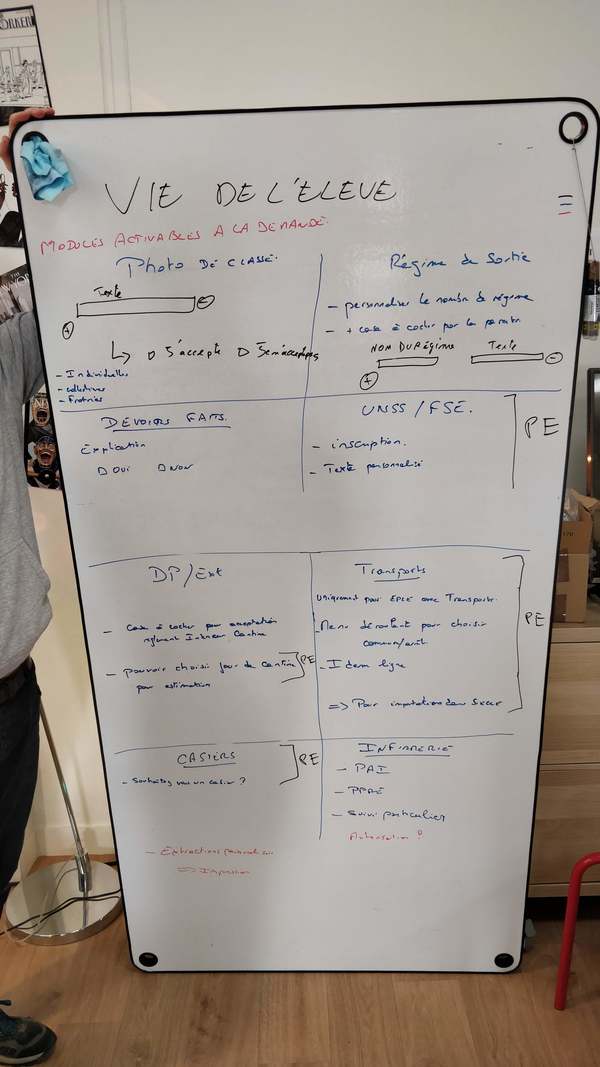 VIE DE L'ÉLEVE
MODULES ACTIVABLES A LA DEMANDE.
Photo DE CLASSE.
Texte
S'accepte
- Individuelles
- collectives
- Fratries
Régime de Sortie
- personnaliser le nombre de régime
- + case à cocher par les parents
NOM DU RÉGIME Texte
DEVOIRS FAITS.
Explication
OUI NON
UNSS / FSE.
- inscription.
- Texte personnalisé
PE
DP/Ext
- Case à cocher pour acceptation
règlement Intérieur Cantine
- pouvoir choisir jour de cantine
pour estimation
PE
Transports
Uniquement pour EPLE avec Transports.
- Menu déroulant pour choisir
- Idem ligne
=> Pour importation dans
PE
CASIERS
- Souhaitez vous un casier ?
PE
INFIRMERIE
- PAI
- PPRE
- Suivi particulier
Autorisation ?
- Extractions
=> Impression